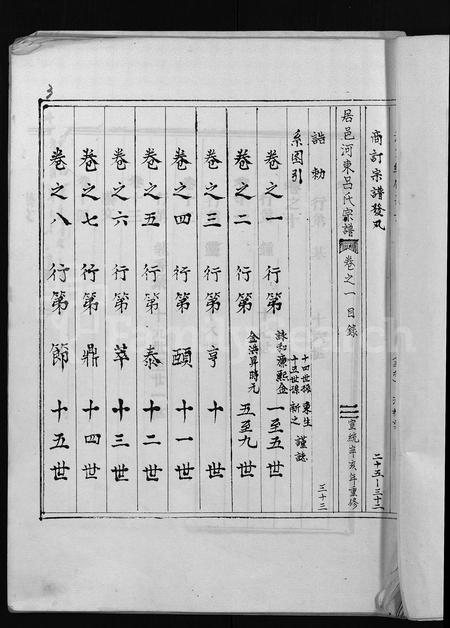 商訂宗譜發凡 二十五—三十二
居邑河東呂氏宗譜 卷之一目錄 宣統辛亥年重修
誥勅
系圖引 十四世孫東生 十五世孫新之 謹誌 三十三
卷之一 行第 詠和濂熙企 一至五世
卷之二 行第 金洪昇時元 五至九世
卷之三 行第 亨 十世
卷之四 行第 頤 十一世
卷之五 行第 泰 十二世
卷之六 行第 萃 十三世
卷之七 行第 鼎 十四世
卷之八 行第 節 十五世
3